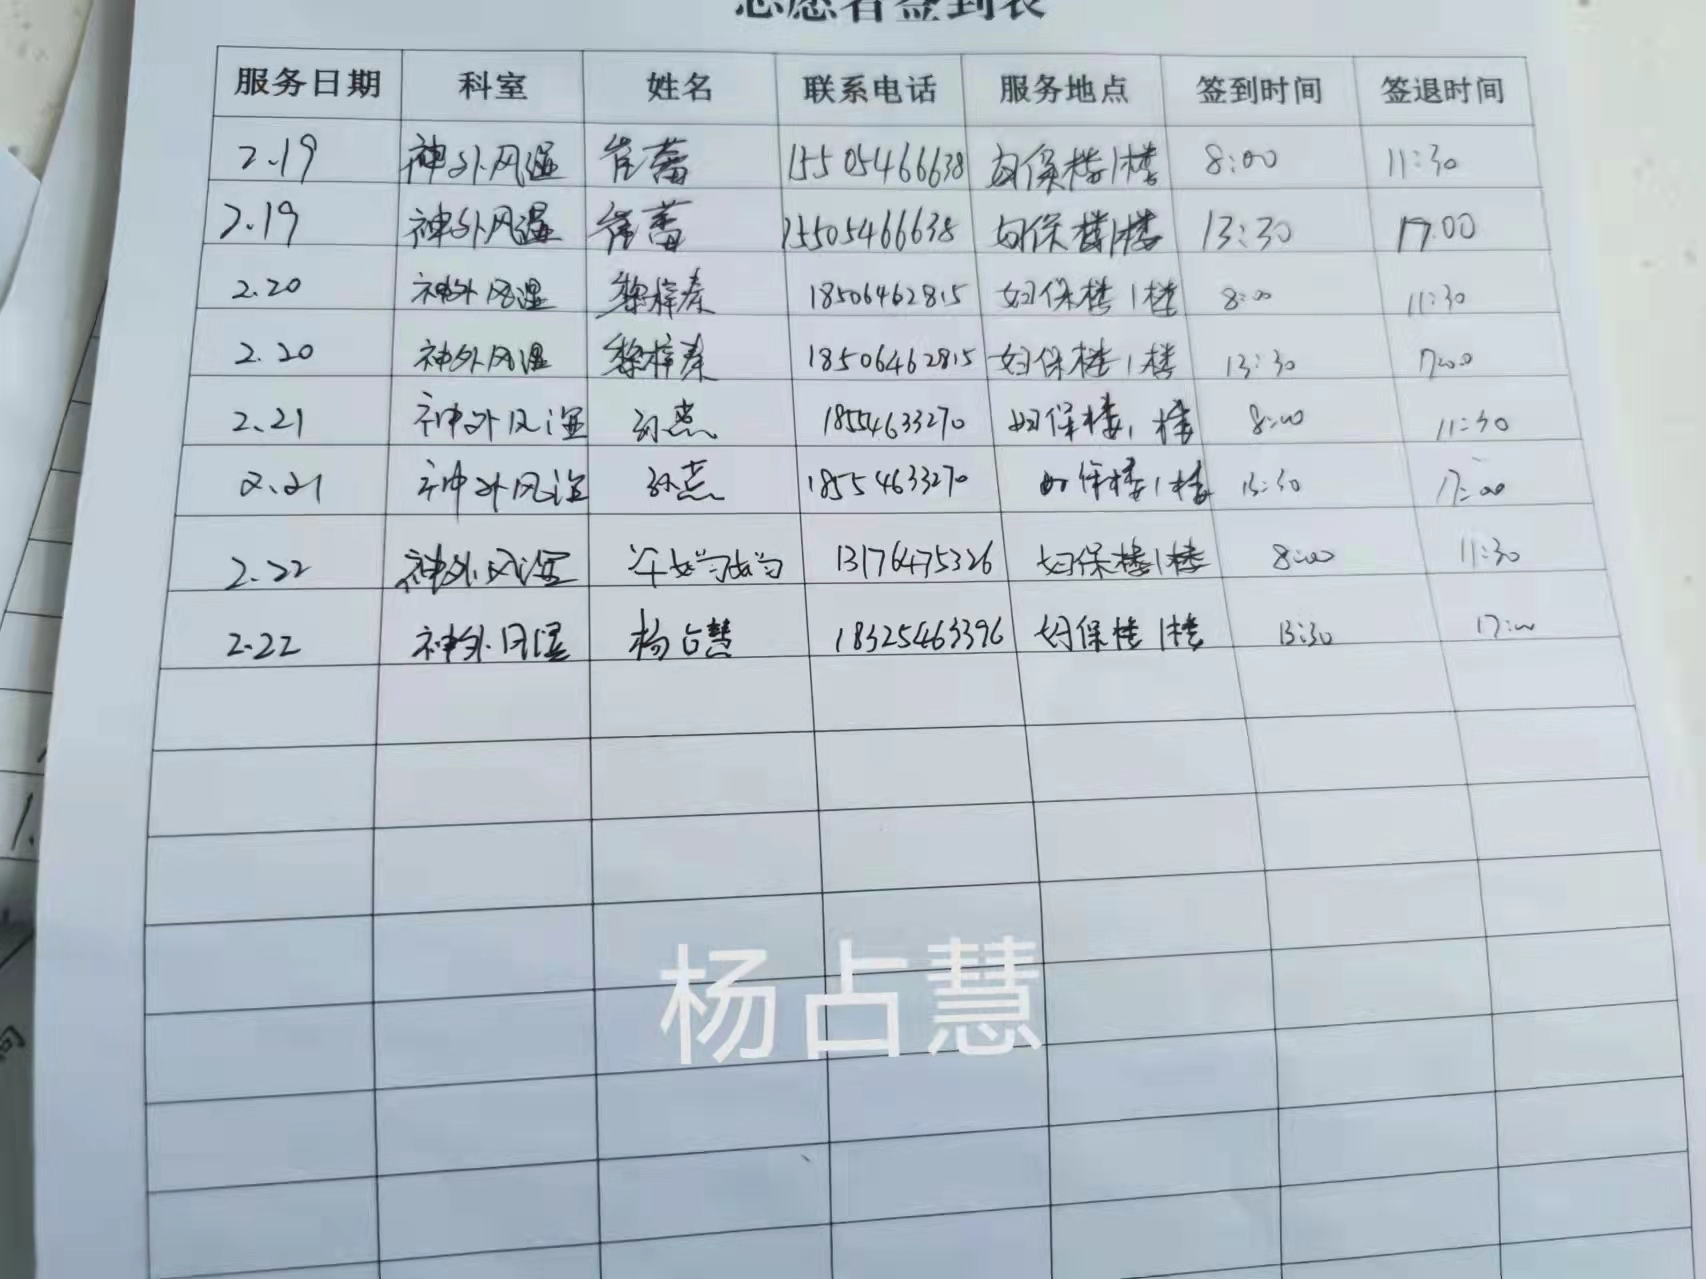 志愿者签到表
服务日期 科室 姓名 联系电话 服务地点 签到时间 签退时间
2.19 神外风湿 崔蕾 15505466638 妇保楼1楼 8:00 11:30
2.19 神外风湿 崔蕾 15505466638 妇保楼1楼 13:30 17:00
2.20 神外风湿 黎梓秦 18506462815 妇保楼1楼 8:00 11:30
2.20 神外风湿 黎梓秦 18506462815 妇保楼1楼 13:30 17:00
2.21 神外风湿 孙燕 18554633270 妇保楼1楼 8:00 11:30
2.21 神外风湿 孙燕 18554633270 妇保楼1楼 13:30 17:00
2.22 神外风湿 13176475326 妇保楼1楼 8:00 11:30
2.22 神外风湿 杨占慧 18325463396 妇保楼1楼 13:30 17:00
杨占慧